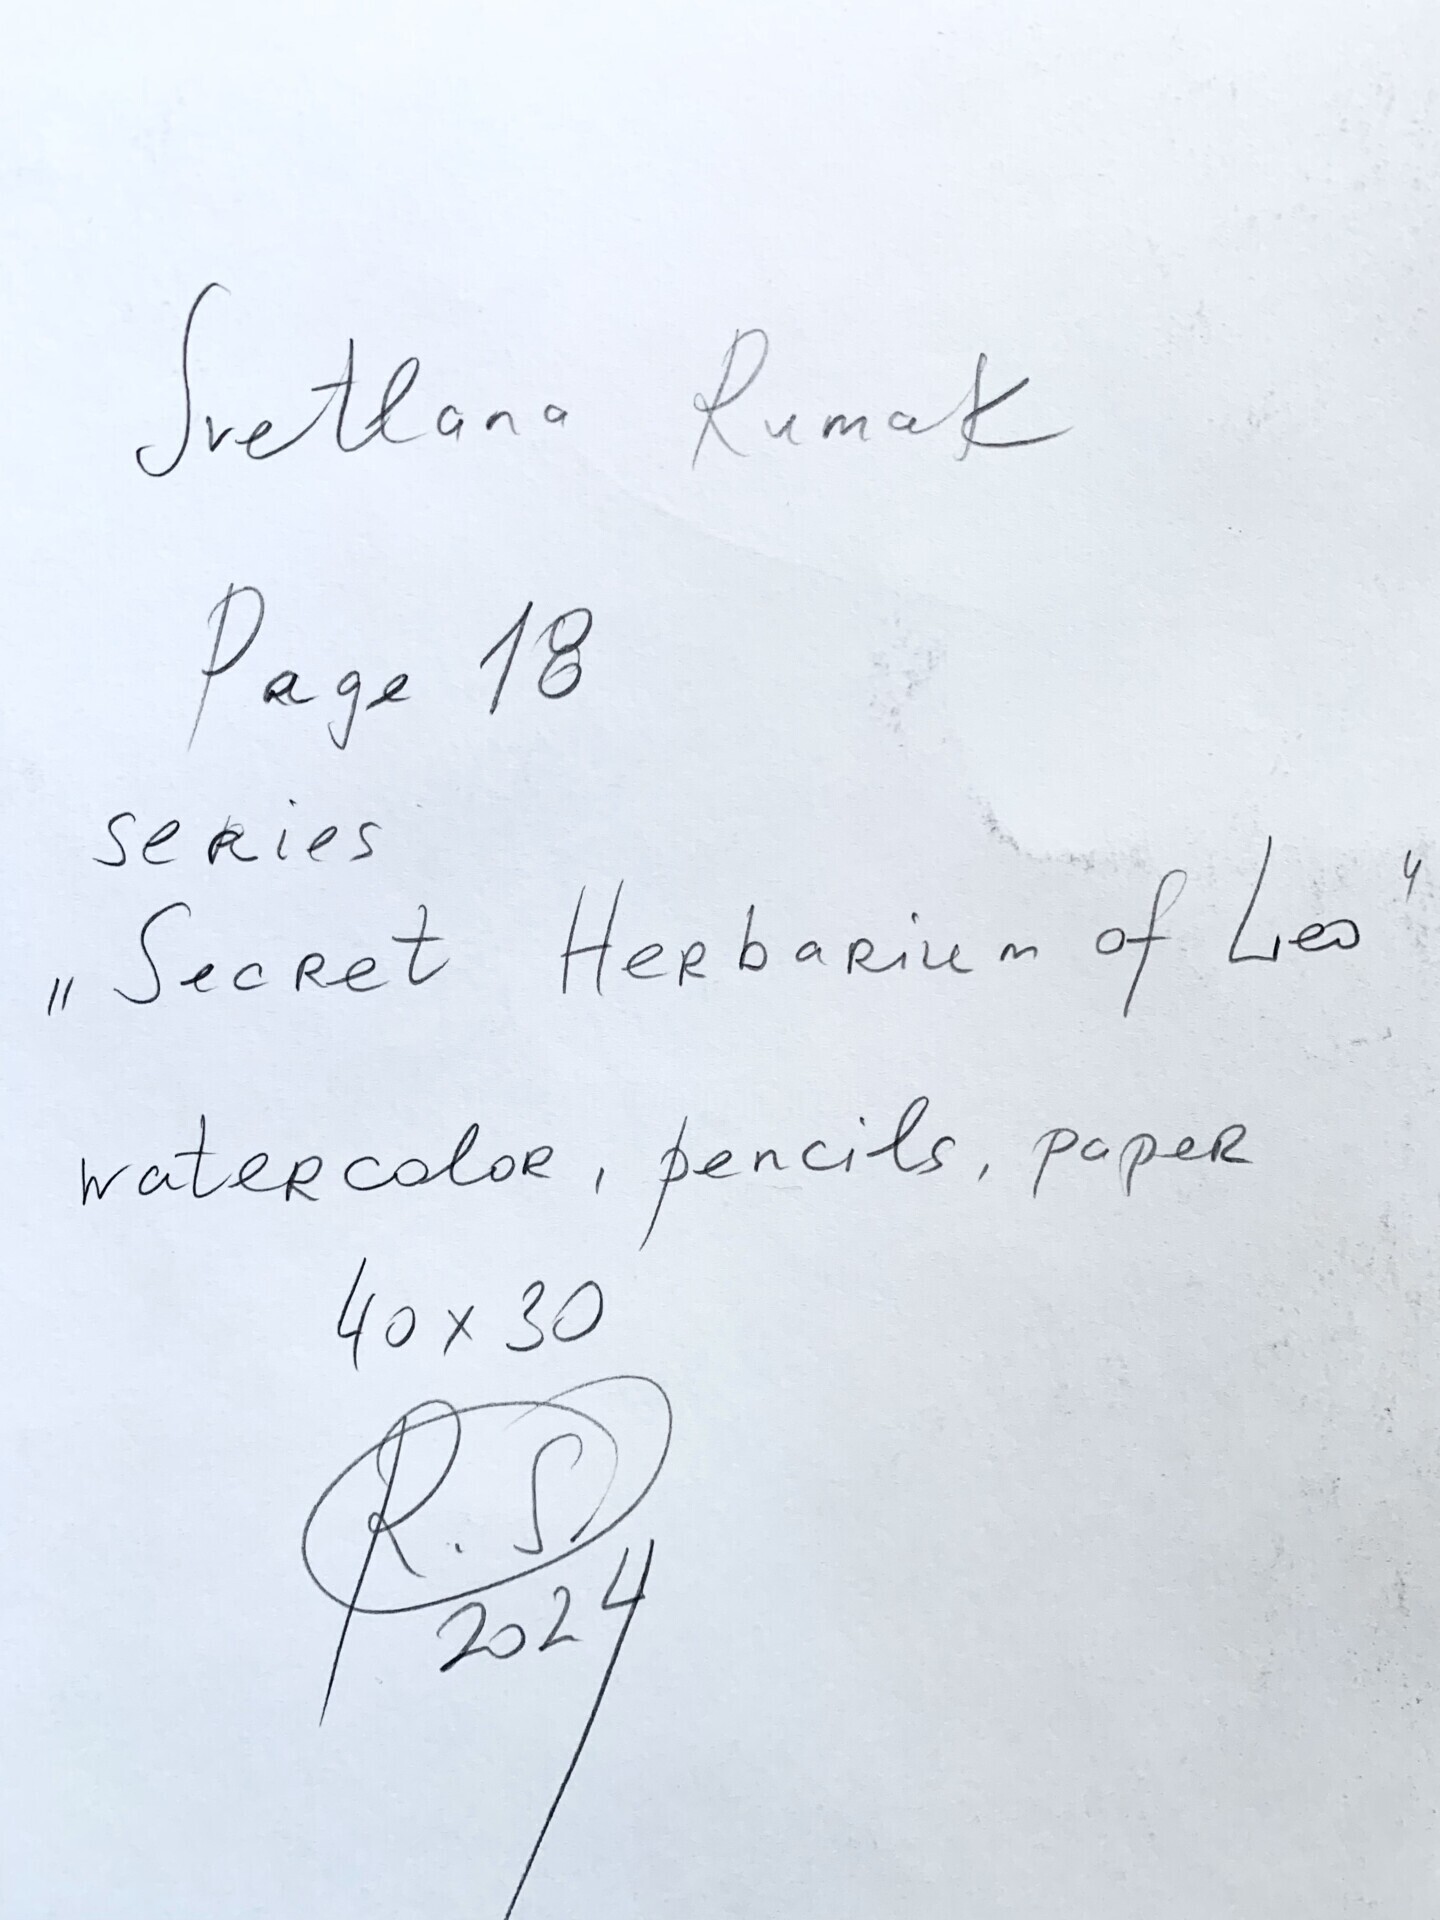 Svetlana Rumak
Page 18
series
„Secret Herbarium of Leo“
watercolor, pencils, paper
40 x 30
R.S
2024